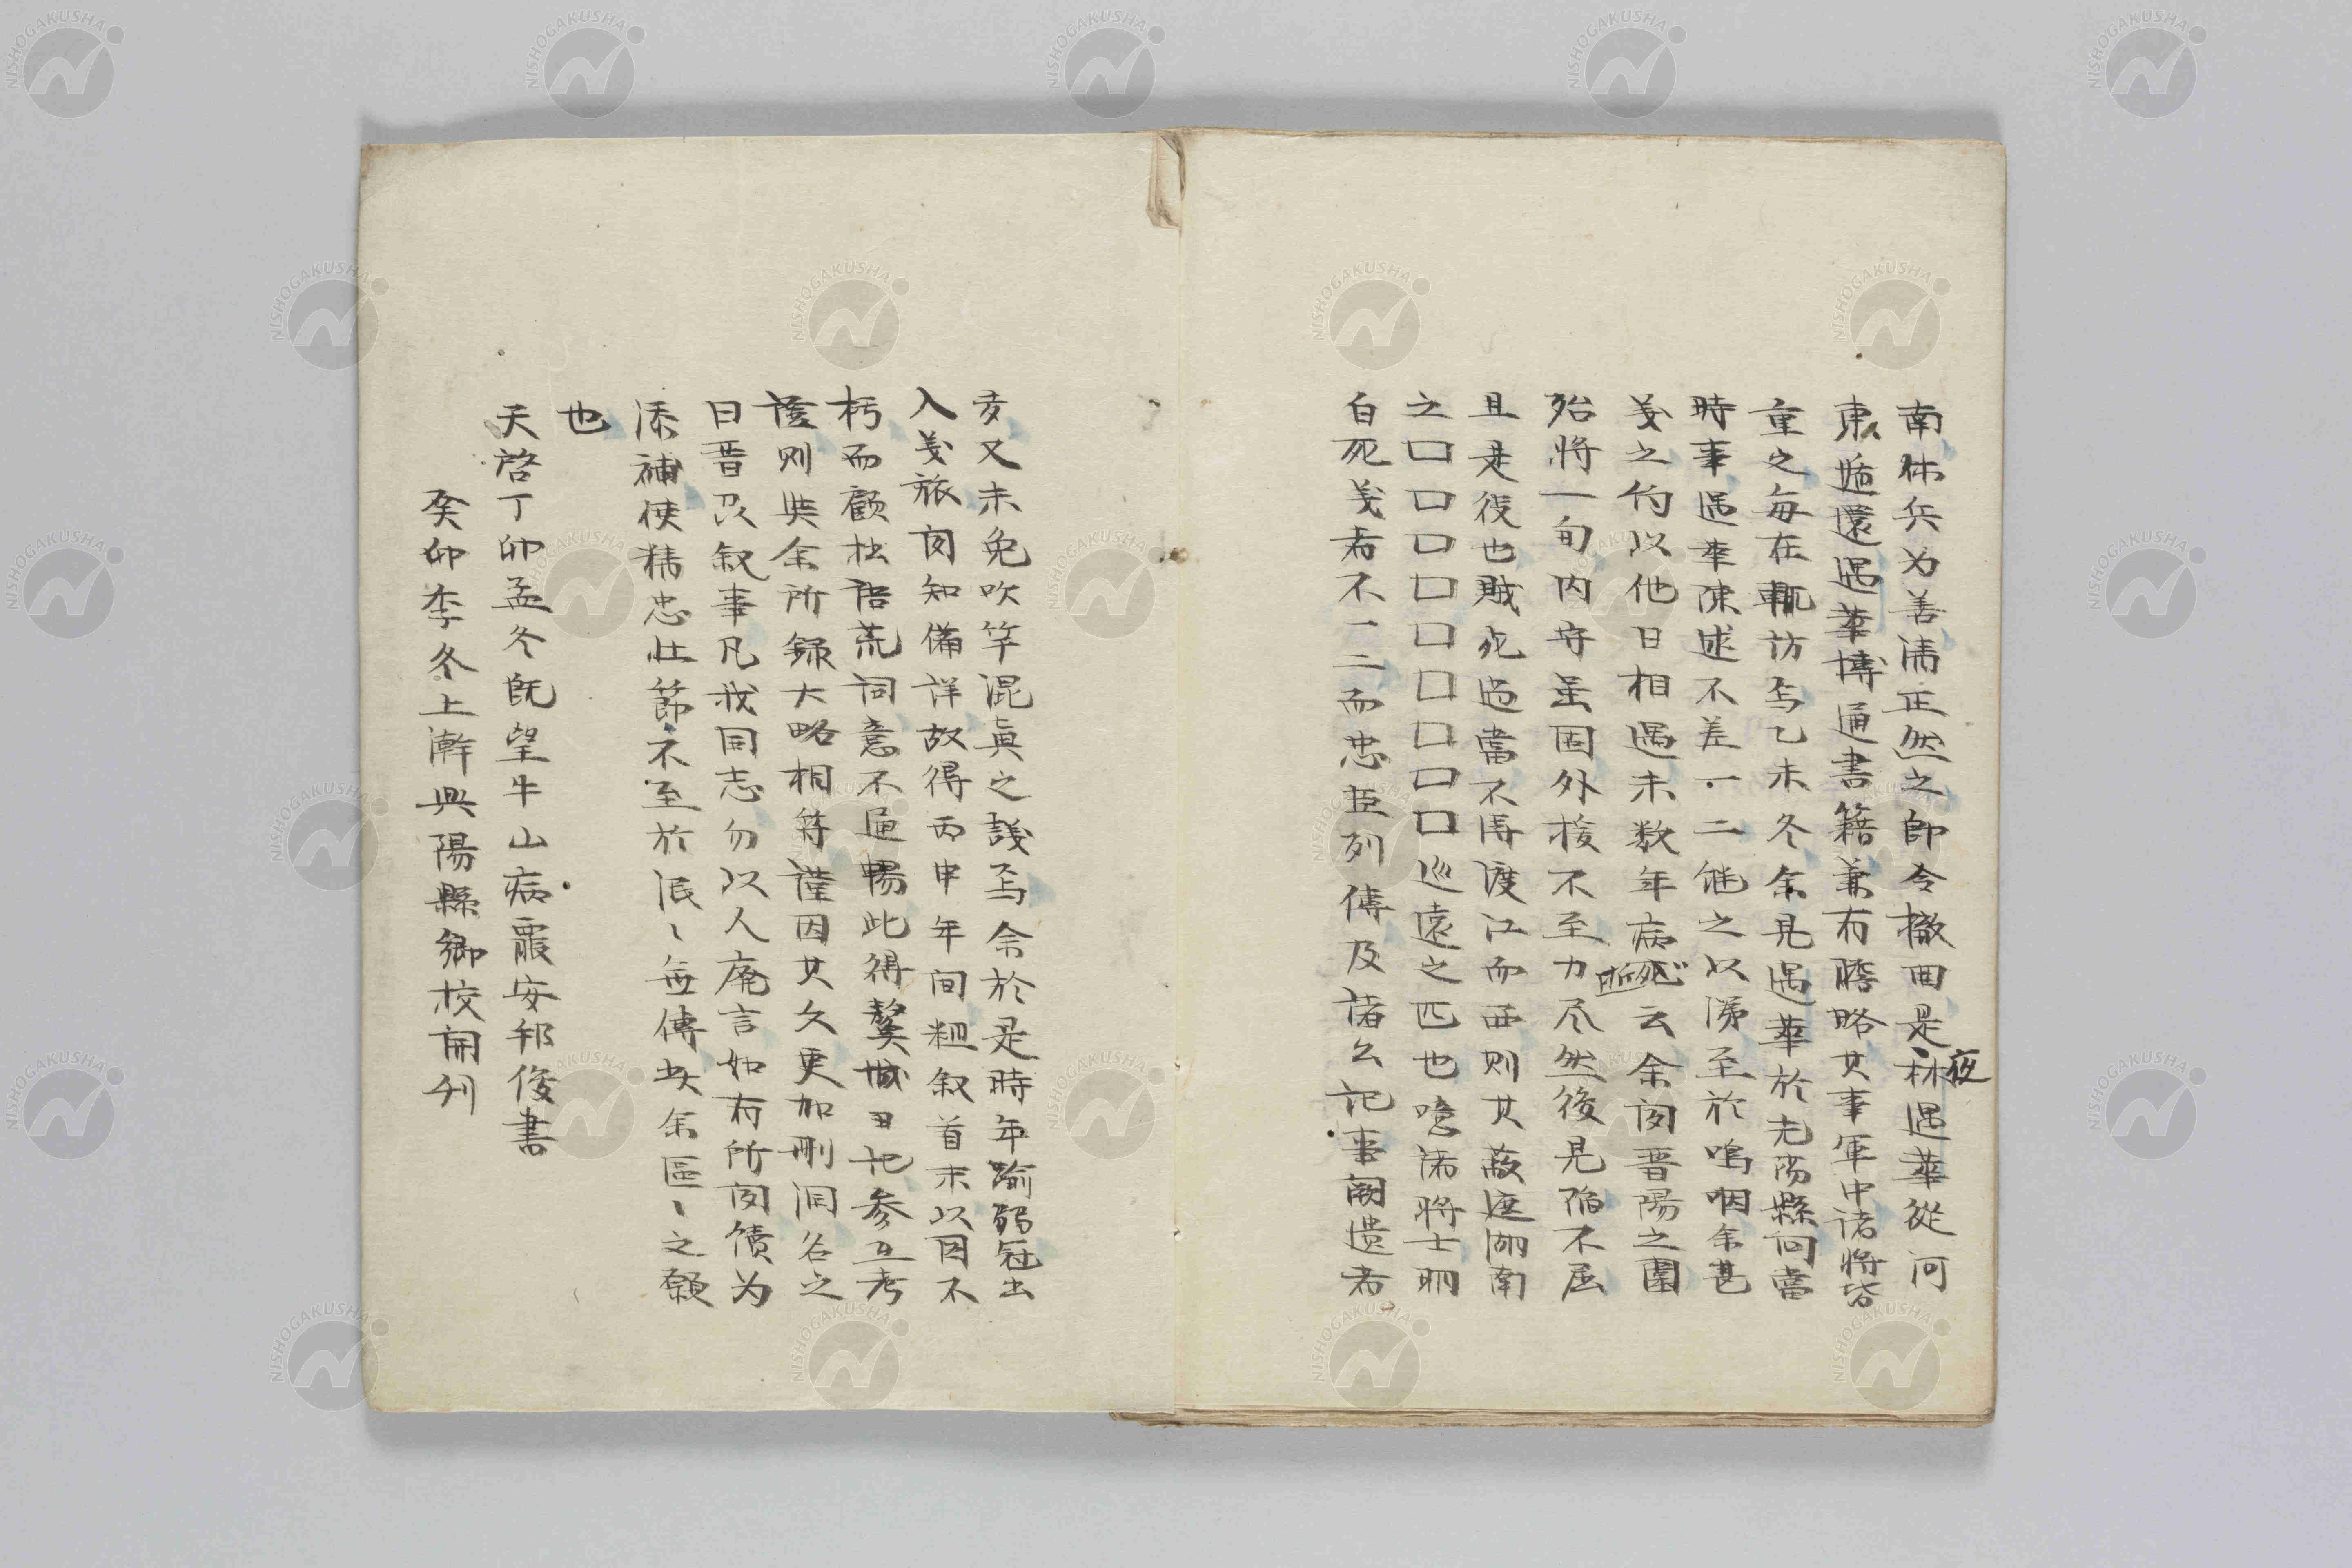 南休兵为善淸正然之卽令撤回是夜遇華從河
東遁還遇華博通書籍兼有膽略其事軍中諸將皆
重之每在輒訪焉乙未冬余見遇華於光陽縣問當
時事遇華陳述不差一二繼之以涕至於嗚咽余甚
義之約以他日相遇未数年病死云余闻晋陽之圍
殆將一旬内守虽固外授不至力尽然後見陷不屈
且是役也賊死過當不得渡江而西则其蔽遮湖南
之口口口口口口口口口巡遠之匹也噫諸將士明
白死義者不一二而忠臣列傳及諸公記事闕遗者
亥又未免吹竽混眞之議焉余於是時年踰弱冠出
入義旅闻知備詳故得丙申年间粗叙首末以图不
朽而顧拙語荒词意不通暢此得龑城日记参互考
證则與余所録大略相符謹因其久更加刪潤名之
曰晋陽叙事凡我同志勿以人廃言如有所闻續为
添補使精忠壮節不至於泯〻無傳此余區〻之願
也
天啓丁卯孟冬既望牛山病叟安邦俊書
癸卯季冬上澣興陽縣鄉校開刊
NISHOGAKUSHA